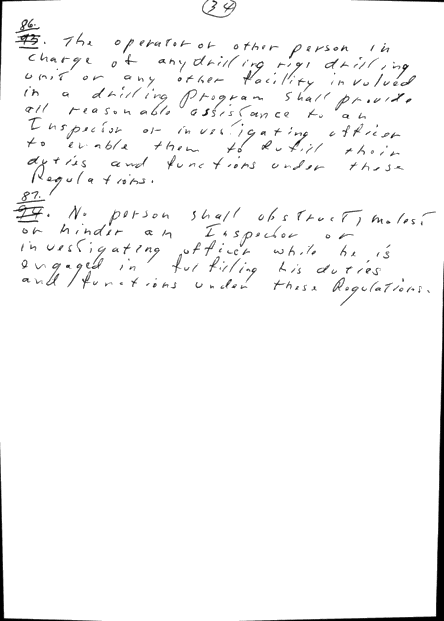 34
86.
93. The operator or other person in
charge of any drilling rig, drilling
unit or any other facility involved
in a drilling Program shall provide
all reasonable assistance to an
Inspector or investigating officer
to enable them to fulfil their
duties and functions under these
Regulations.
87.
94. No person shall obstruct, molest
or hinder an Inspector or
investigating officer while he is
engaged in fulfilling his duties
and functions under these Regulations.